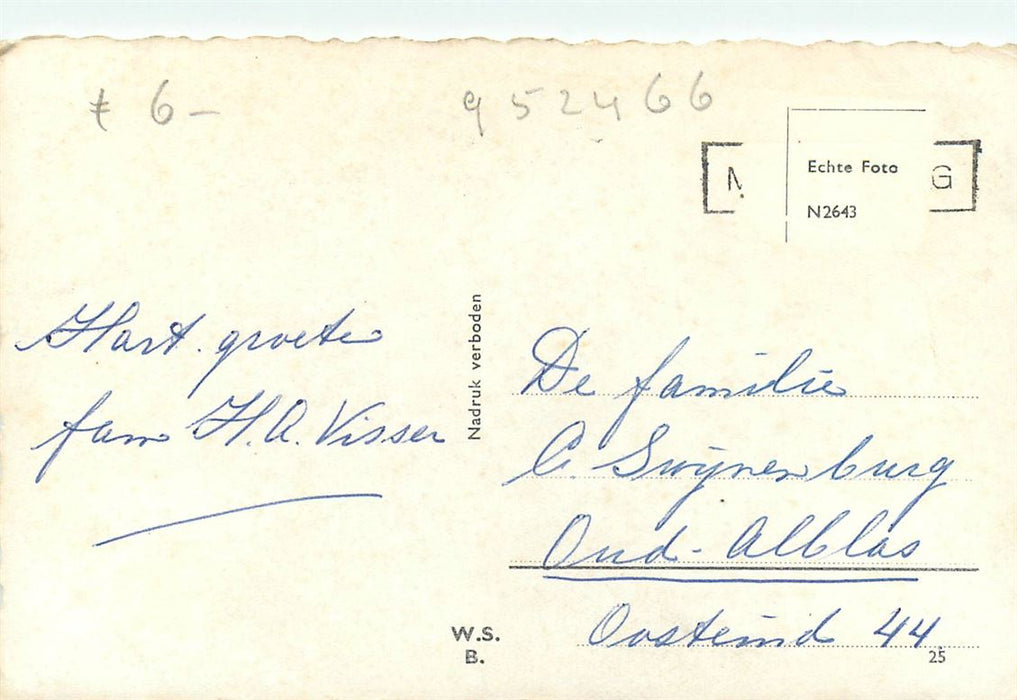 € 6-
952466
Echte Foto
N2643
G
Hart. groeten
fam H.A. Visser
Nadruk verboden
De familie
C. Swijnenburg
Oud-Alblas
Oosteind 44
W.S.
B.
25